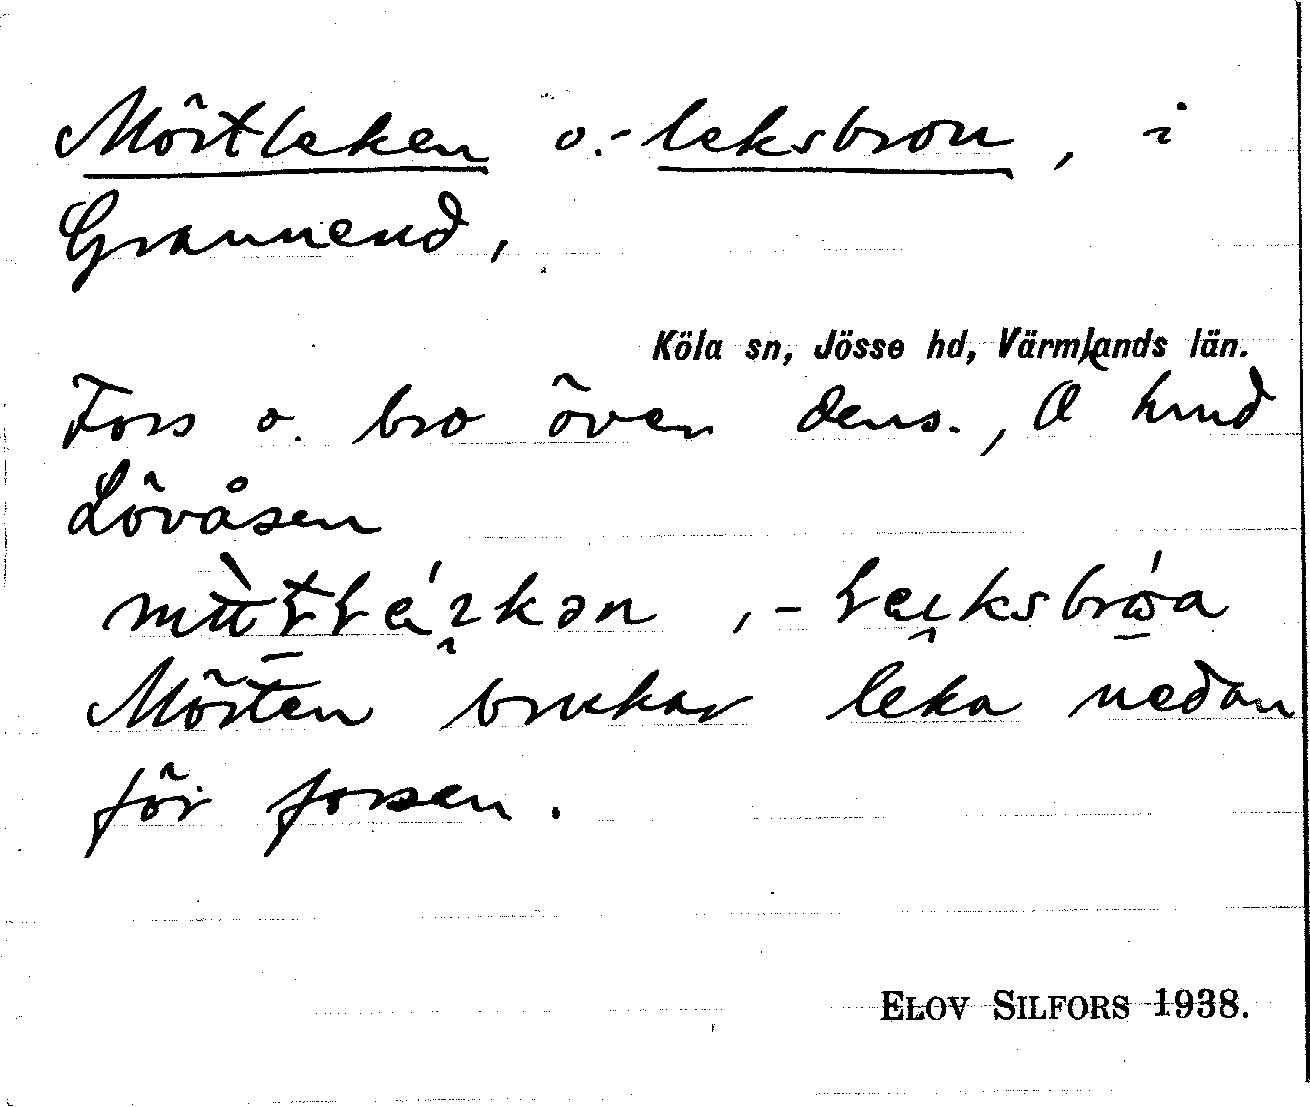 Mörtleken o. -leksbron, i
Grannerud,
Köla sn, Jösse hd, Värmlands län.
Fors o. bro över dens., Ö hmd
Lövåsen
Mörten brukar leka nedan
för forsen.
ELOV SILFORS 1938.